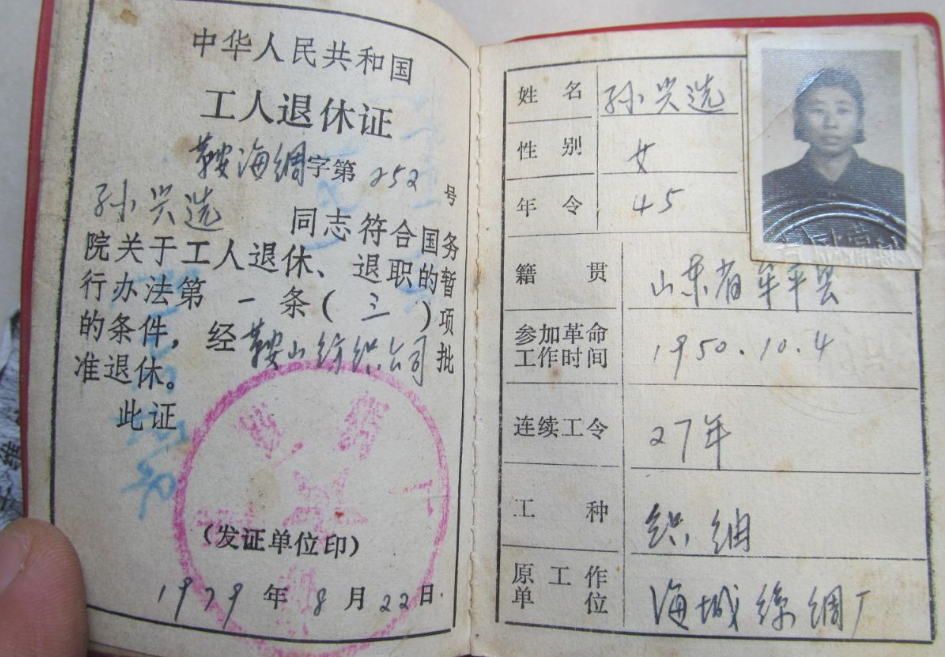 中华人民共和国
工人退休证
鞍海绸字第252号
孙兴选 同志符合国务
院关于工人退休、退职的暂
行办法第一条(三)项
的条件，经鞍山纺织公司批
准退休。
此证
(发证单位印)
1979年8月22日
姓名 孙兴选
性别 女
年令 45
籍贯 山东省牟平县
参加革命工作时间 1950.10.4
连续工令 27年
工种 织绸
原工作单位 海城丝绸厂